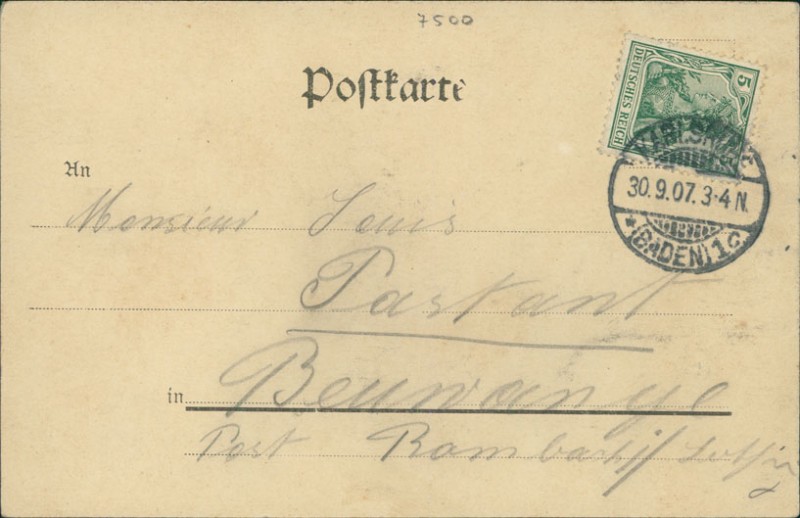 7500
Postkarte
5
DEUTSCHES REICH
KARLSRUHE
30.9.07. 3-4 N.
* (BADEN) 1c
An
Monsieur Louis
Pastant
in Beuvange
Post Rombach